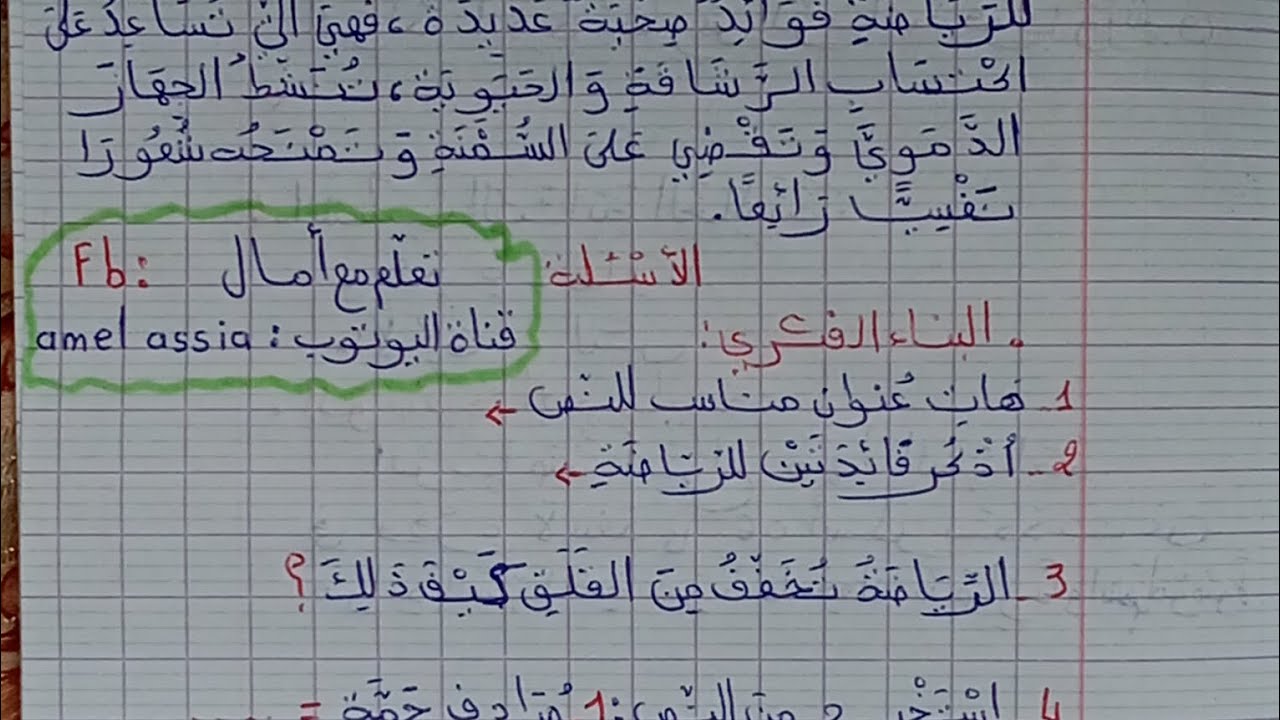 للرِّيَاضَةِ فَوَائِدُ صِحِّيَّةٌ عَدِيدَةٌ، فَهِيَ الَّتِي تُسَاعِدُ عَلَى
اكْتِسَابِ الرَّشَاقَةِ وَالحَيَوِيَّةِ، تُنَشِّطُ الجِهَازَ
الدَّمَوِيَّ وَتَقْضِي عَلَى السُّمْنَةِ وَتَمْنَحُكَ شُعُورًا
نَفْسِيًّا رَائِعًا.
الأسْئلة
Fb: تعلّم مع أمال
قناة اليوتوب: amel assia
. البناء الفكري:
1_ هَاتِ عُنوان مناسب للنّص ←
2_ أذْكُر فَائِدَتَيْنِ للرّيَاضَةِ ←
3_ الرِّيَاضَةُ تُخَفِّفُ مِنَ القَلَقِ كَيْفَ ذَلِكَ؟
4_ اسْتَخْرِجْ من النّص: 1 مُرَادِف جَمَّة =